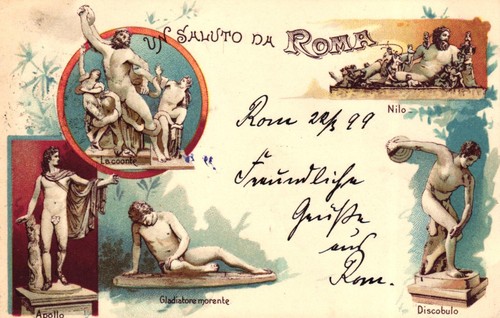 Un Saluto da Roma
Laocoonte
Nilo
Rom 22/3 99
Freundliche
Grüße
aus
Rom.
Apollo
Gladiatore morente
Discobulo